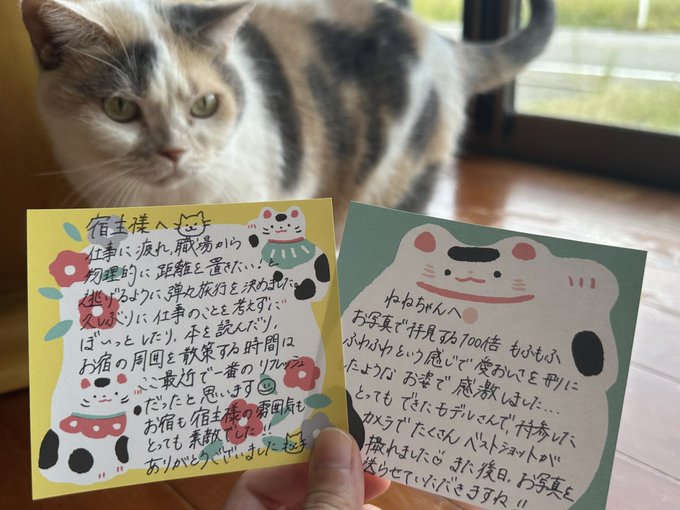 宿主様へ
仕事に疲れ、職場から
物理的に距離を置きたい!と
逃げるように弾丸旅行を決めました。
久しぶりに仕事のことを考えずに
ぼいっとしたり、本を読んだり、
お宿の周囲を散策する時間は
ここ最近で一番のリフレッシュ
だったと思います
お宿も宿主様の雰囲気も
とても素敵でした!!
ありがとうございました
ねねちゃんへ
お写真で拝見する100倍 もふもふ
ふわふわという感じで愛おしさを形に
したような お姿で 感激しました...
とても できたモデルさんで 持参した
カメラで たくさん ベストショットが
撮れました♡ また後日、お写真を
送らせていただきますね!!